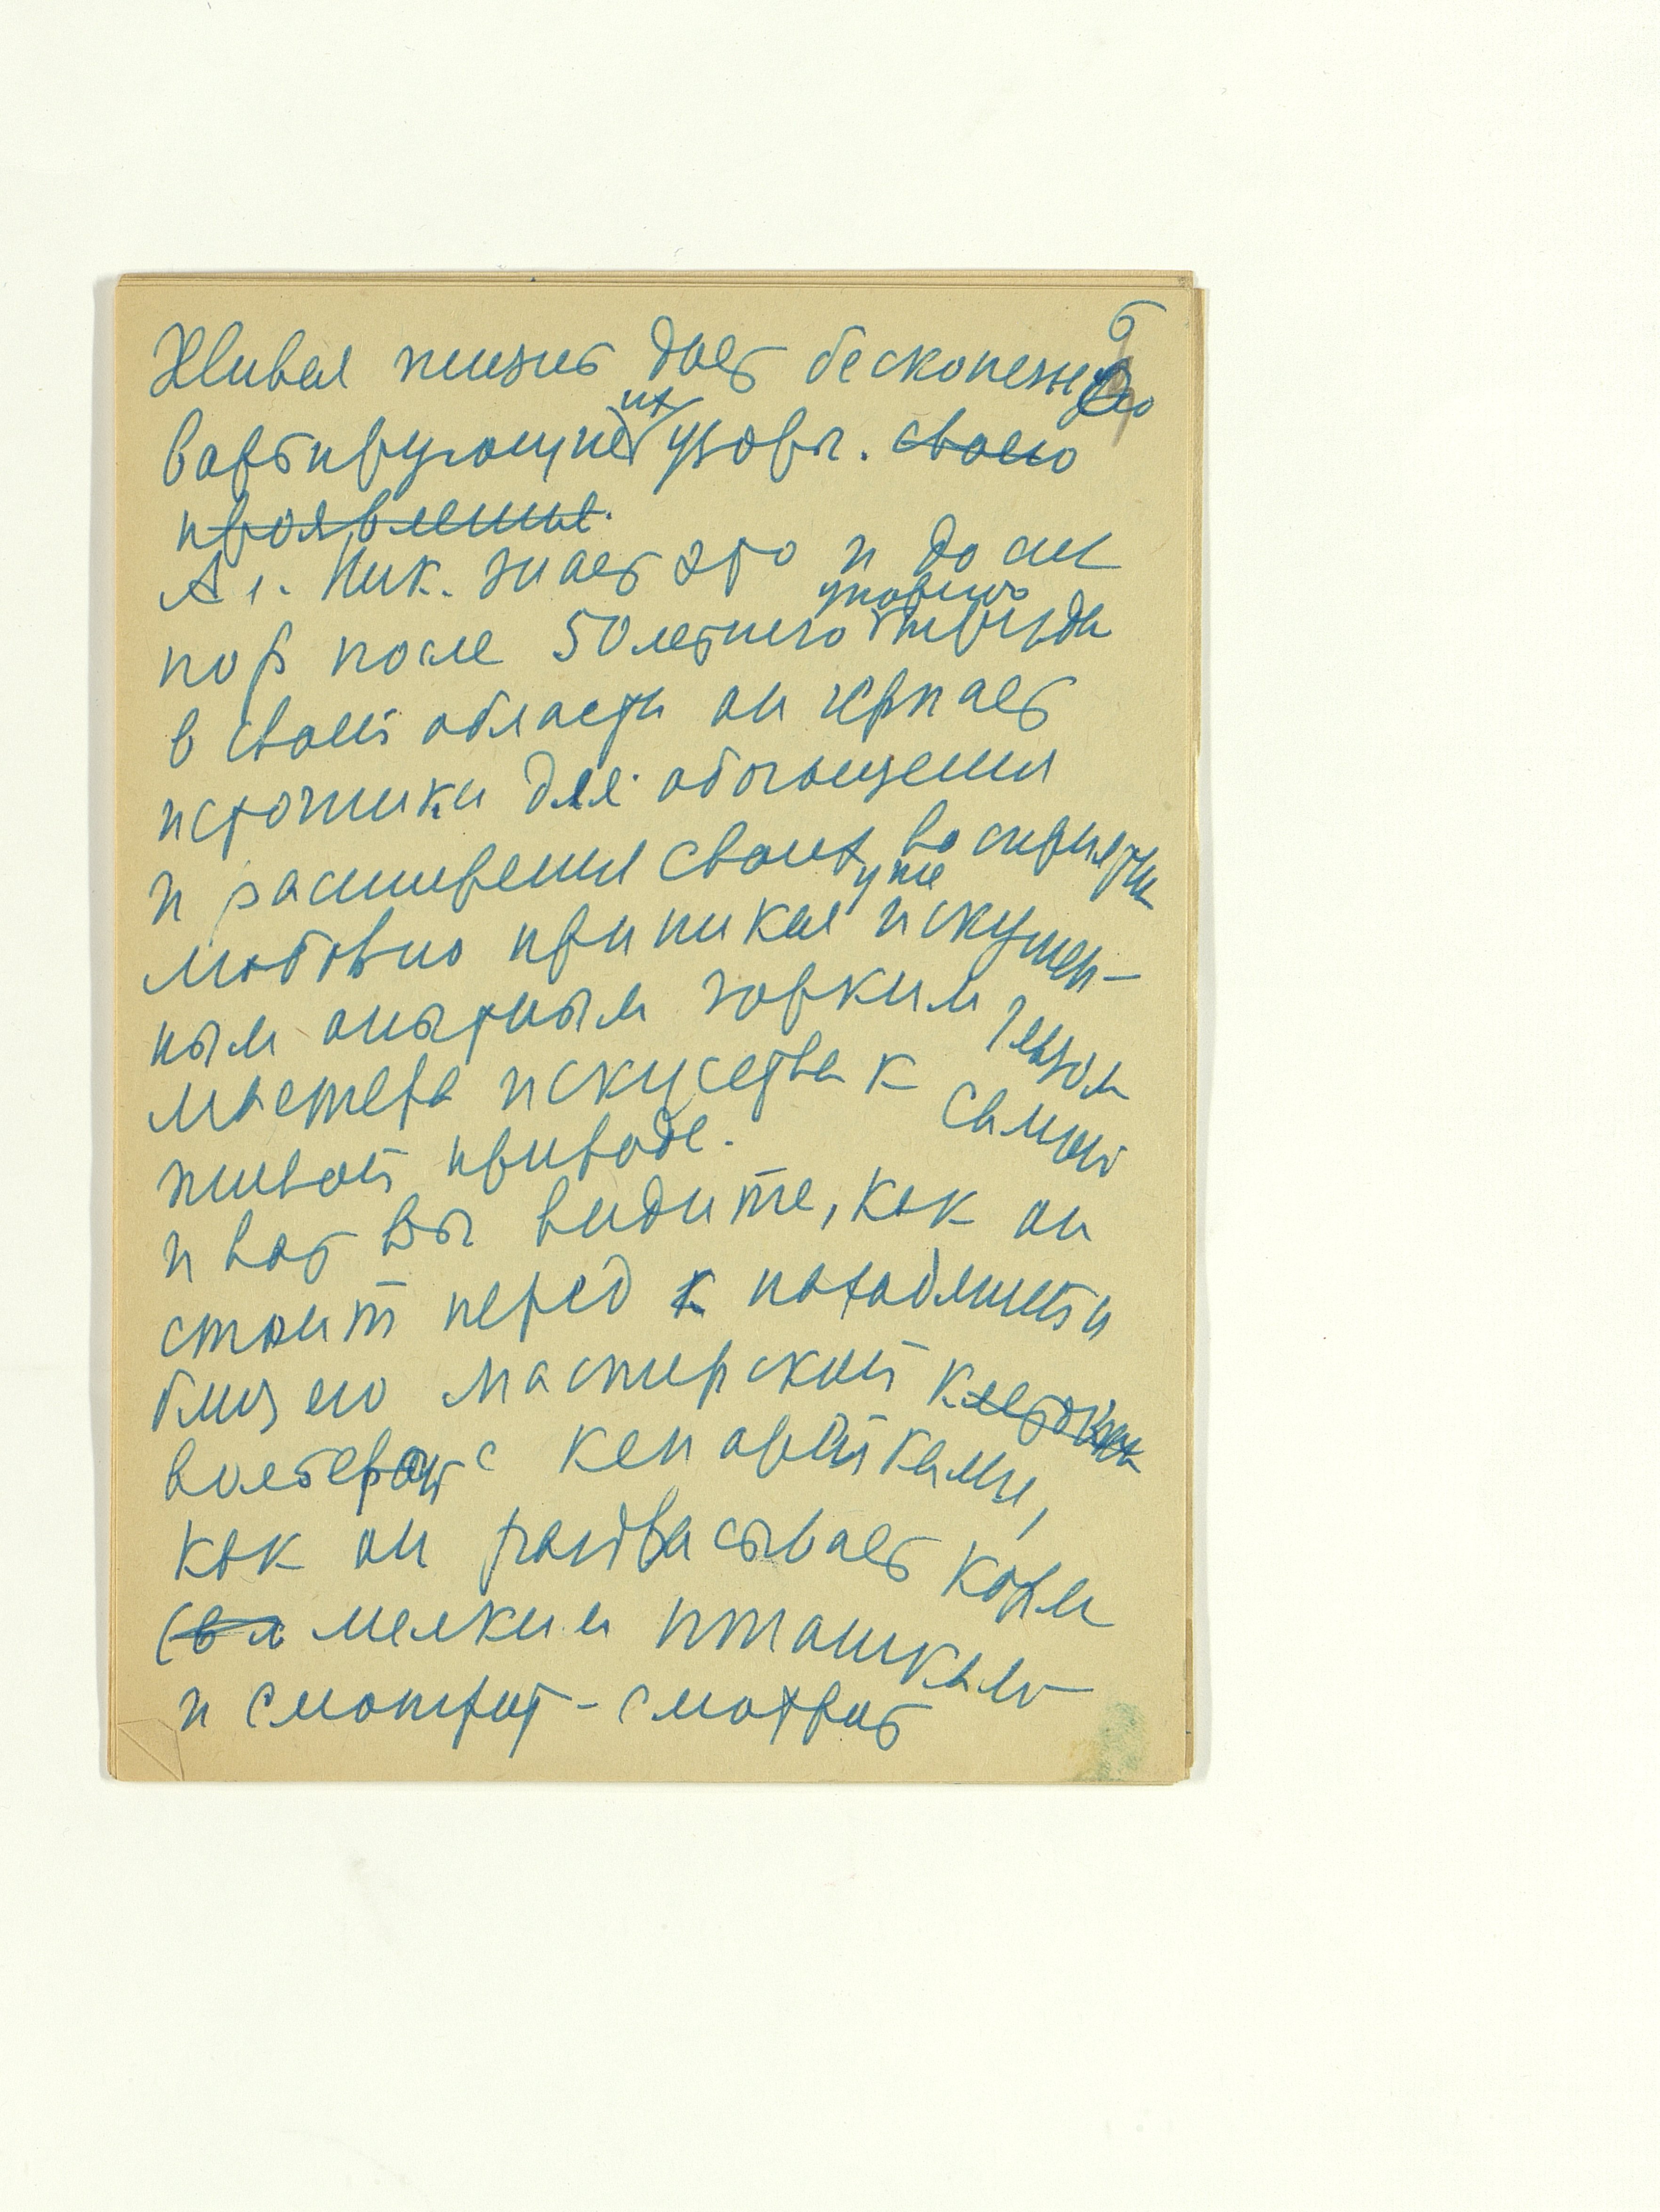 6
Живая жизнь дает бесконечно
варьирующие их узоры. своего
проявления.
Ал. Ник. знает это и до сих
пор после 50летнего упорного труда
в своей области он черпает
источники для обогащения
и расширения своих восприятий
любовно приникая уже искушен-
ным опытным зорким глазом
мастера искусства к самой
живой природе.
и вот вы видите, как он
стоит перед к находящейся
близ его мастерской клетки
вольерой с канарейками,
как он разбрасывает корм
мелким пташкам
и смотрит-смотрит